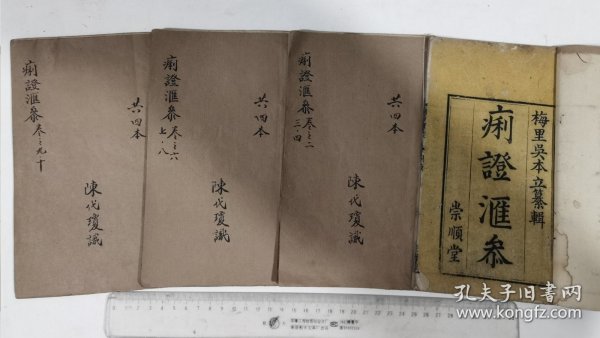 梅里吳本立纂輯
痢證滙參
崇順堂
痢證滙參 卷之二
三·四
共四本
陳代瓊識
痢證滙參 卷之六
七·八
共四本
陳代瓊識
痢證滙參 卷之九十
共四本
陳代瓊識
孔夫子旧书网
www.kongfz.com